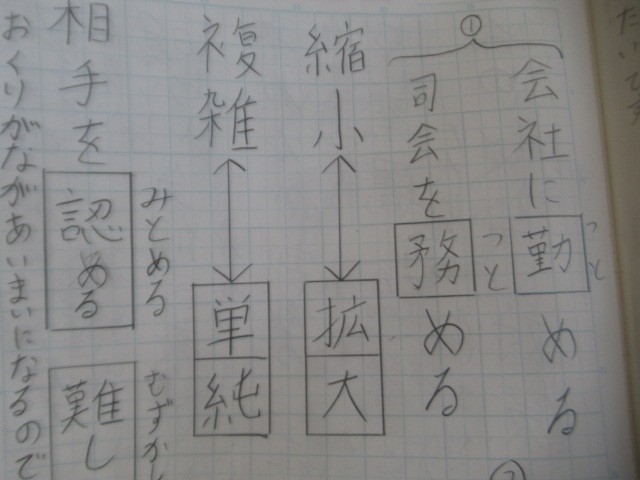 だいです
①
会社に勤める
つと
司会を務める
つと
縮小↔拡大
複雑↔単純
みとめる
相手を認める
むずかし
難し
おくりがながあいまいになるので
②